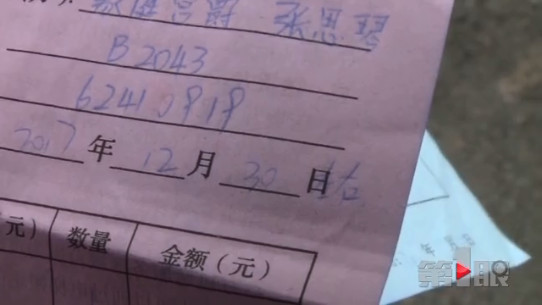 宫爵 张思琴
B2043
62410919
2017年12月30日
元） 数量 金额（元）
第1眼